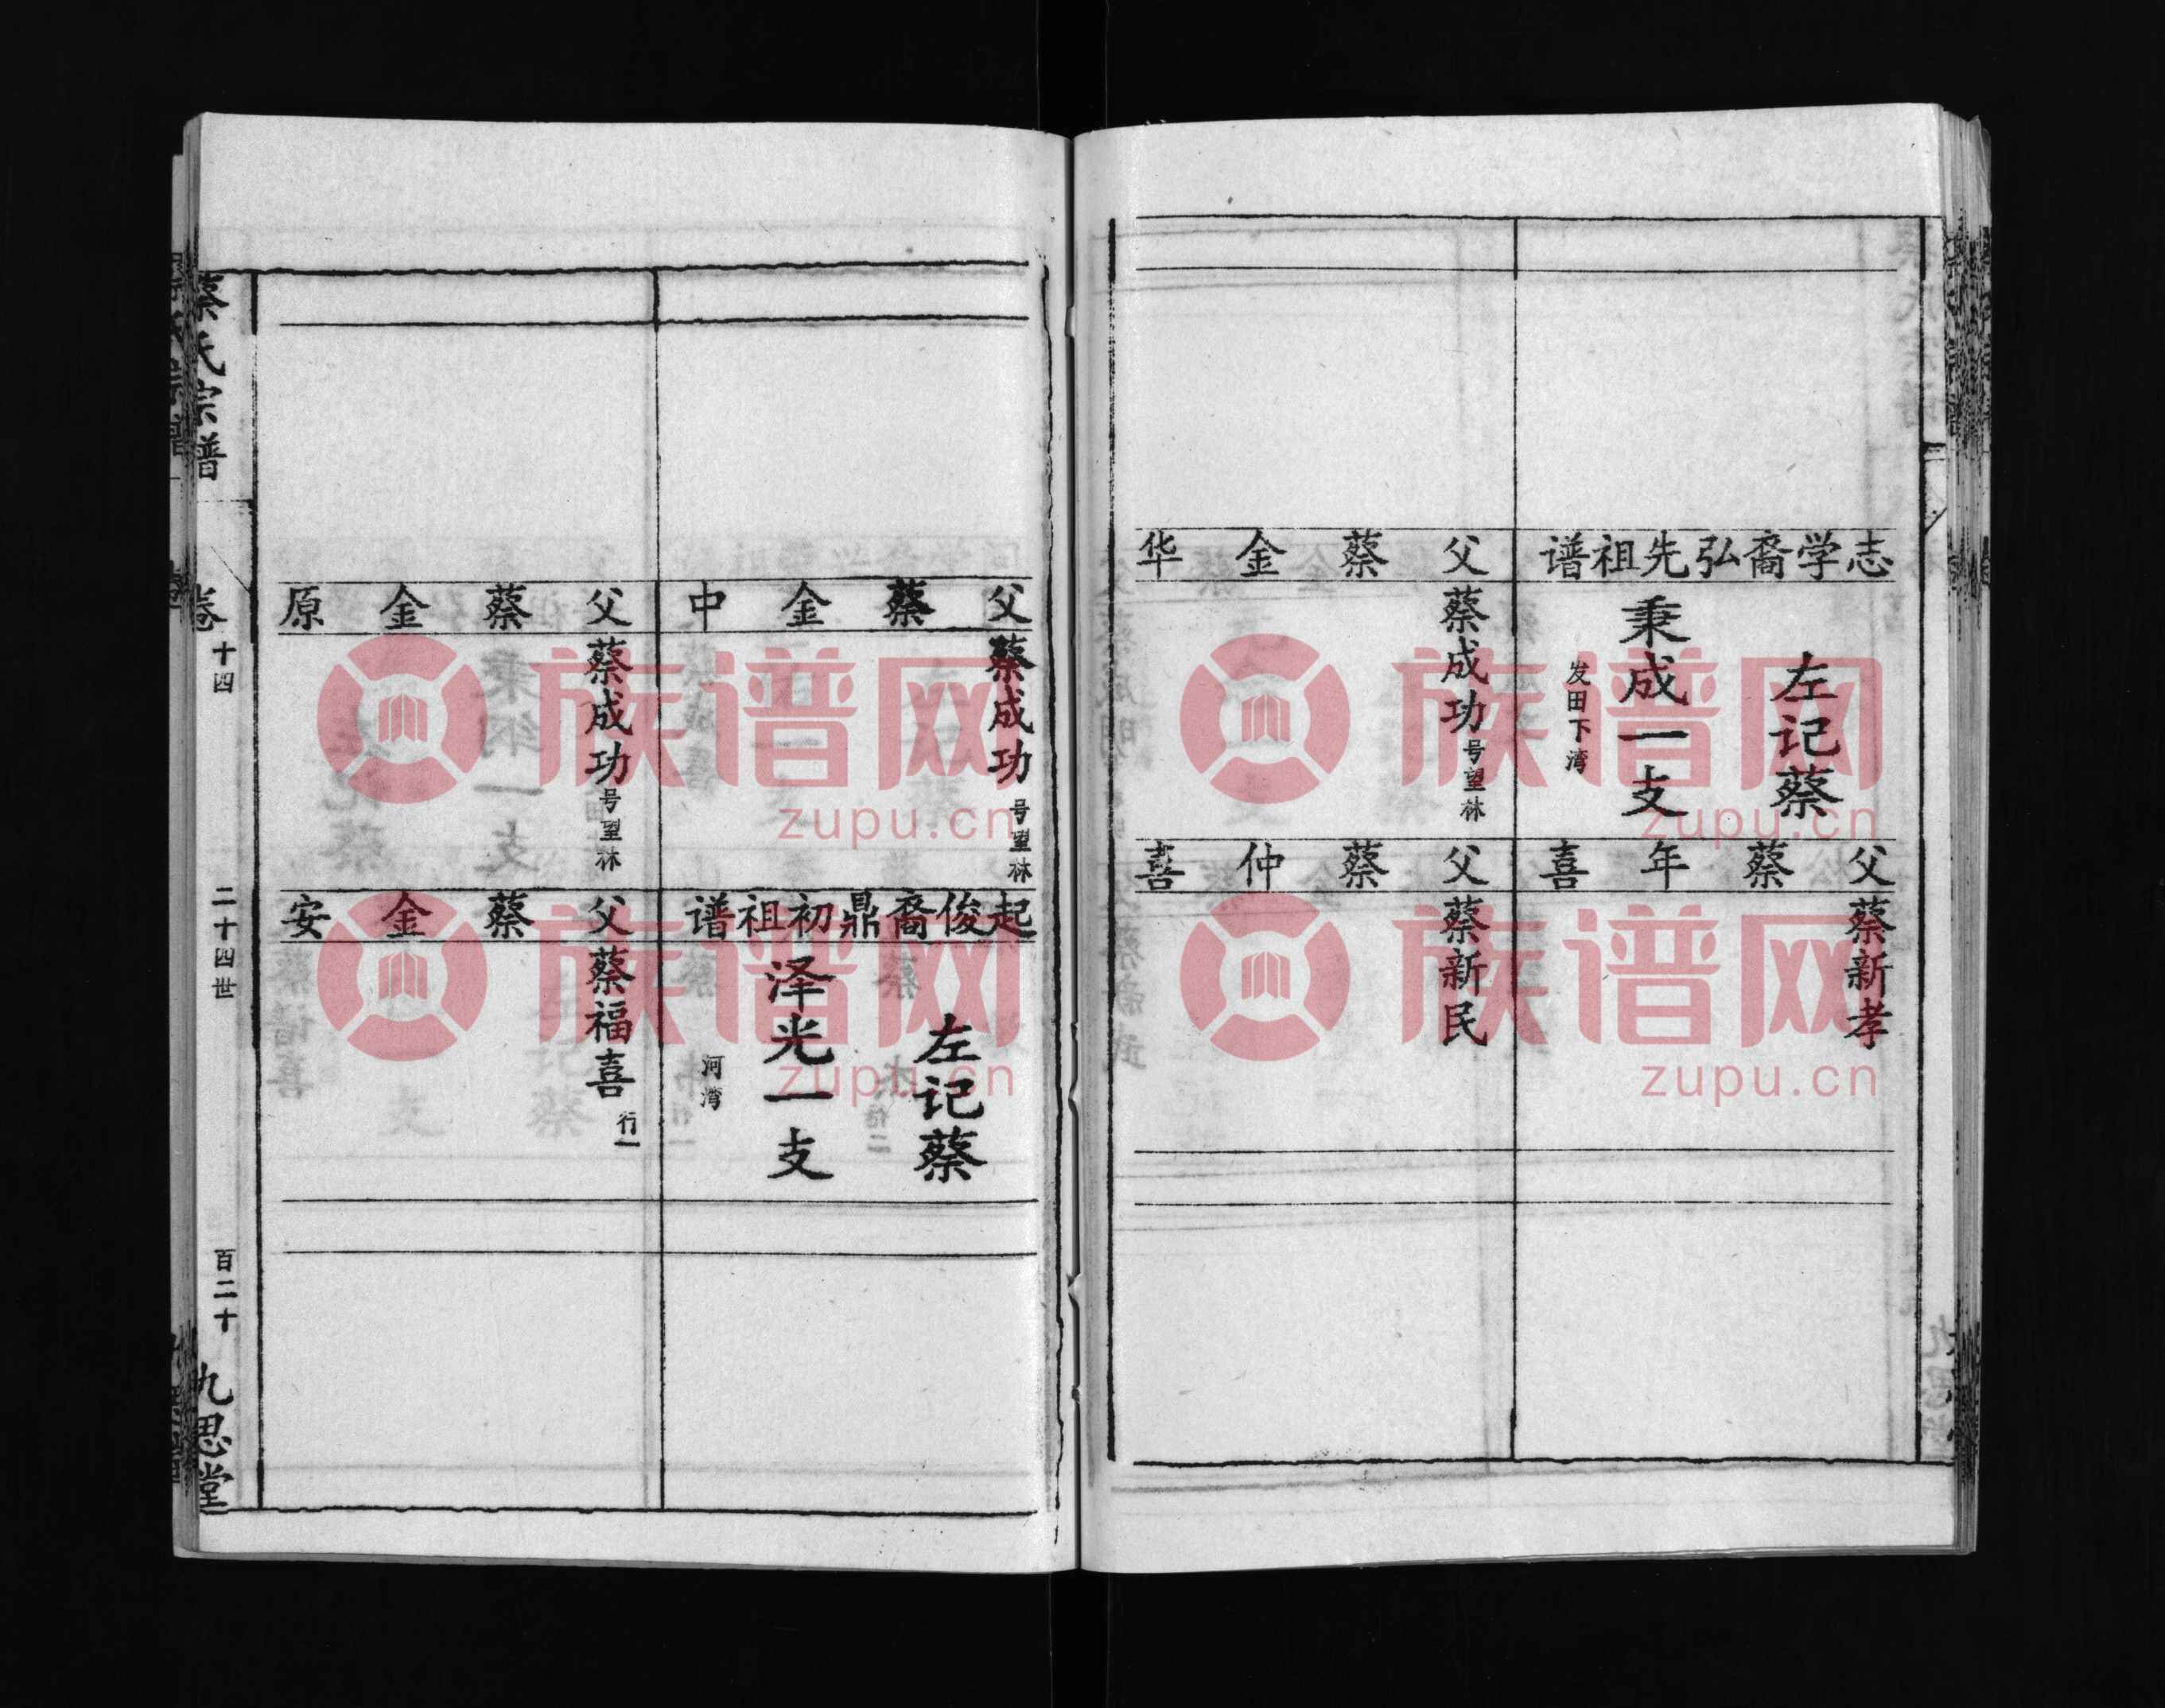 志学裔弘先祖谱
左记蔡
秉成一支
发田下湾
父蔡金华
蔡成功
号望林
父蔡年喜
蔡新孝
父蔡仲喜
蔡新民
父蔡金中
蔡成功
号望林
父蔡金原
蔡成功
号望林
起俊裔鼎初祖谱
左记蔡
泽光一支
河湾
父蔡金安
蔡福喜
行一
蔡氏宗谱
卷
十四
二十四世
百二十
九思堂
族谱网
zupu.cn
族谱网
zupu.cn
族谱网
zupu.cn
族谱网
zupu.cn